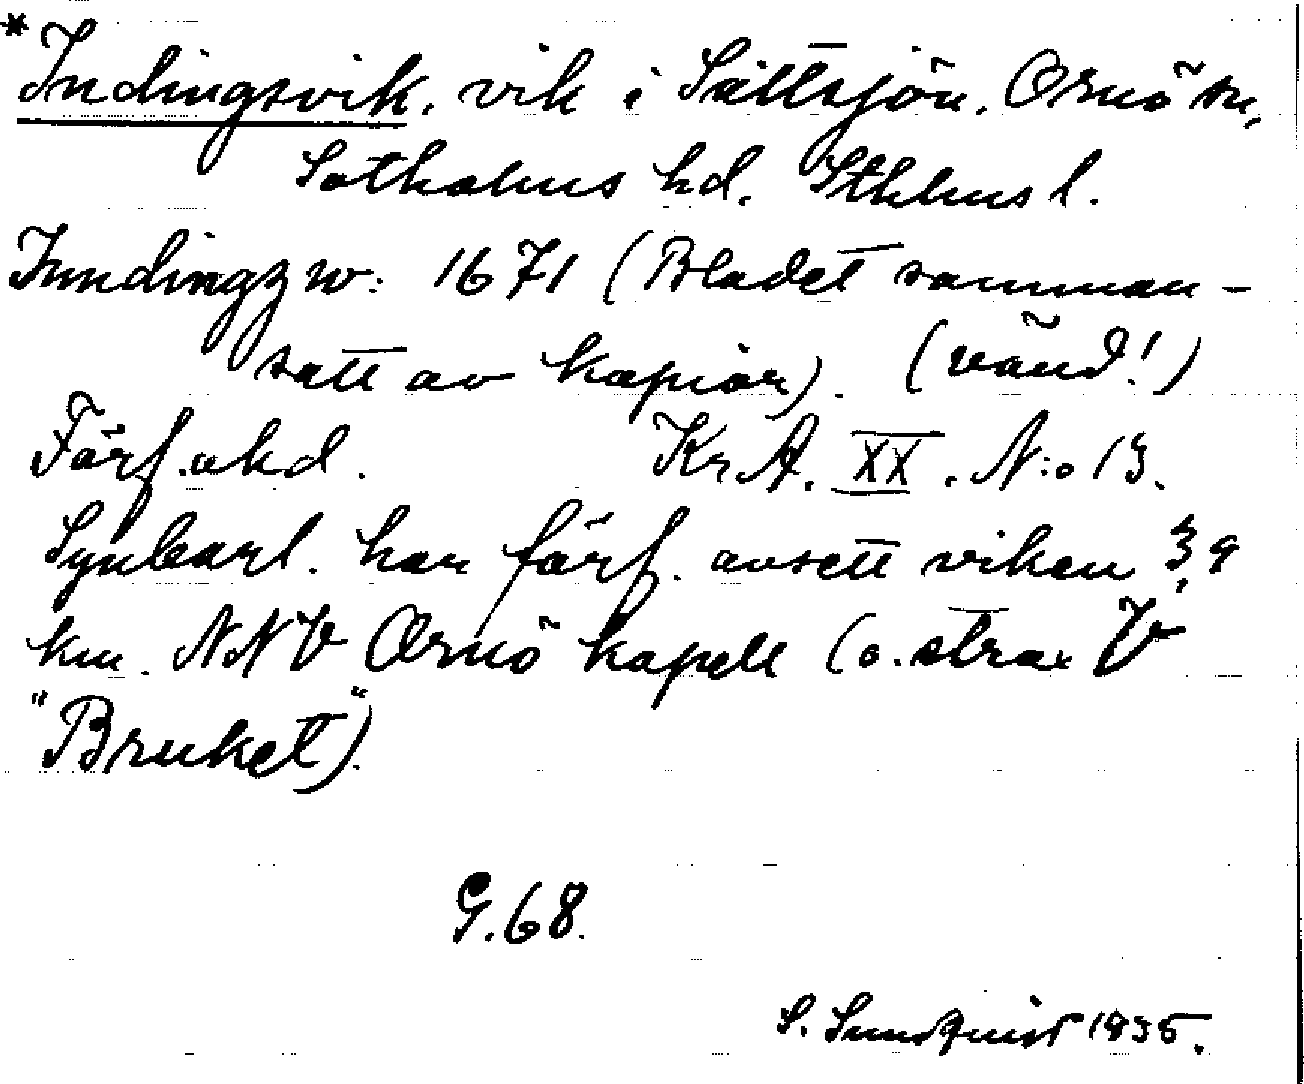 *Indingsvik, vik i Saltsjön. Ornö sn,
Sotholms hd. Sthlms l.
Inndingzw: 1671 (Bladet samman-
satt av kopior). (vänd!)
Förf. okd. Kr. A. XX. N:o 13.
Synbarl. har förf. avsett viken 3,9
km. NNV Ornö kapell (o. strax V
"Bruket").
G. 68.
S. Sundquist 1935.